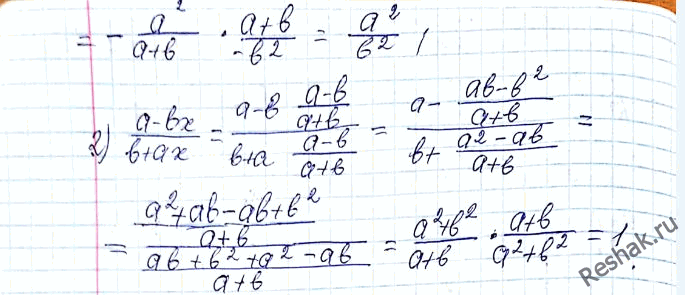 = - a²/(a+b) · (a+b)/(-b²) = a²/b² ;
2) (a-bx)/(b+ax) = (a-b (a-b)/(a+b))/(b+a (a-b)/(a+b)) = (a - (ab-b²)/(a+b))/(b + (a²-ab)/(a+b)) =
= ((a²+ab-ab+b²)/(a+b))/((ab+b²+a²-ab)/(a+b)) = (a²+b²)/(a+b) · (a+b)/(a²+b²) = 1.
Reshak.ru